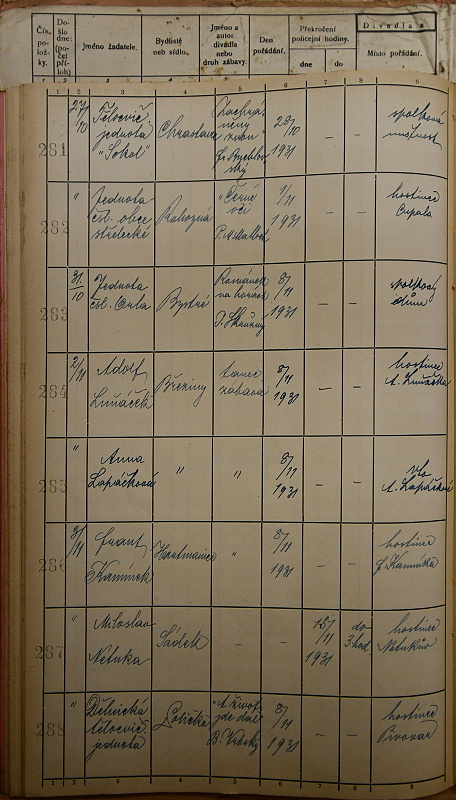 Čís. polož-ky.
Do-šlo dne: (počet příloh)
Jméno žadatele.
Bydliště neb sídlo.
Jméno a autor divadla nebo druh zábavy.
Den pořádání.
Překročení policejní hodiny.
dne
do
Divadla a
Místo pořádání.
1 2 3 4 5 6 7 8 9
281
27/10
Tělocvič.
jednota
"Sokol"
Chrastava
28/10
1931
—
—
spolková
místnost
282
"
Jednota
čsl. obce
střelecké
Rohozná
"Černé
oči
1/11
1931
—
—
hostinec
Cupala
283
31/10
Jednota
čsl. Orla
Bystré
8/11
1931
—
—
spolkový
dům
284
2/11
Adolf
Luňáček
Březiny
tanec
zábava
8/11
1931
—
—
hostinec
A. Luňáčka
285
"
Anna
Lopáčková
"
"
8/11
1931
—
—
A. Lopáčkové
286
3/11
Frant.
Kamínek
Hartmanice
"
8/11
1931
—
—
hostinec
F. Kamínka
287
"
Miloslav
Netuka
Sádek
—
—
15/11
1931
do
3 hod.
hostinec
Netukův
288
"
Dělnická
tělocvič.
jednota
Lotička
"A život
jde dál
8/11
1931
—
—
hostinec
Pivovar
1 2 3 4 5 6 7 8 9